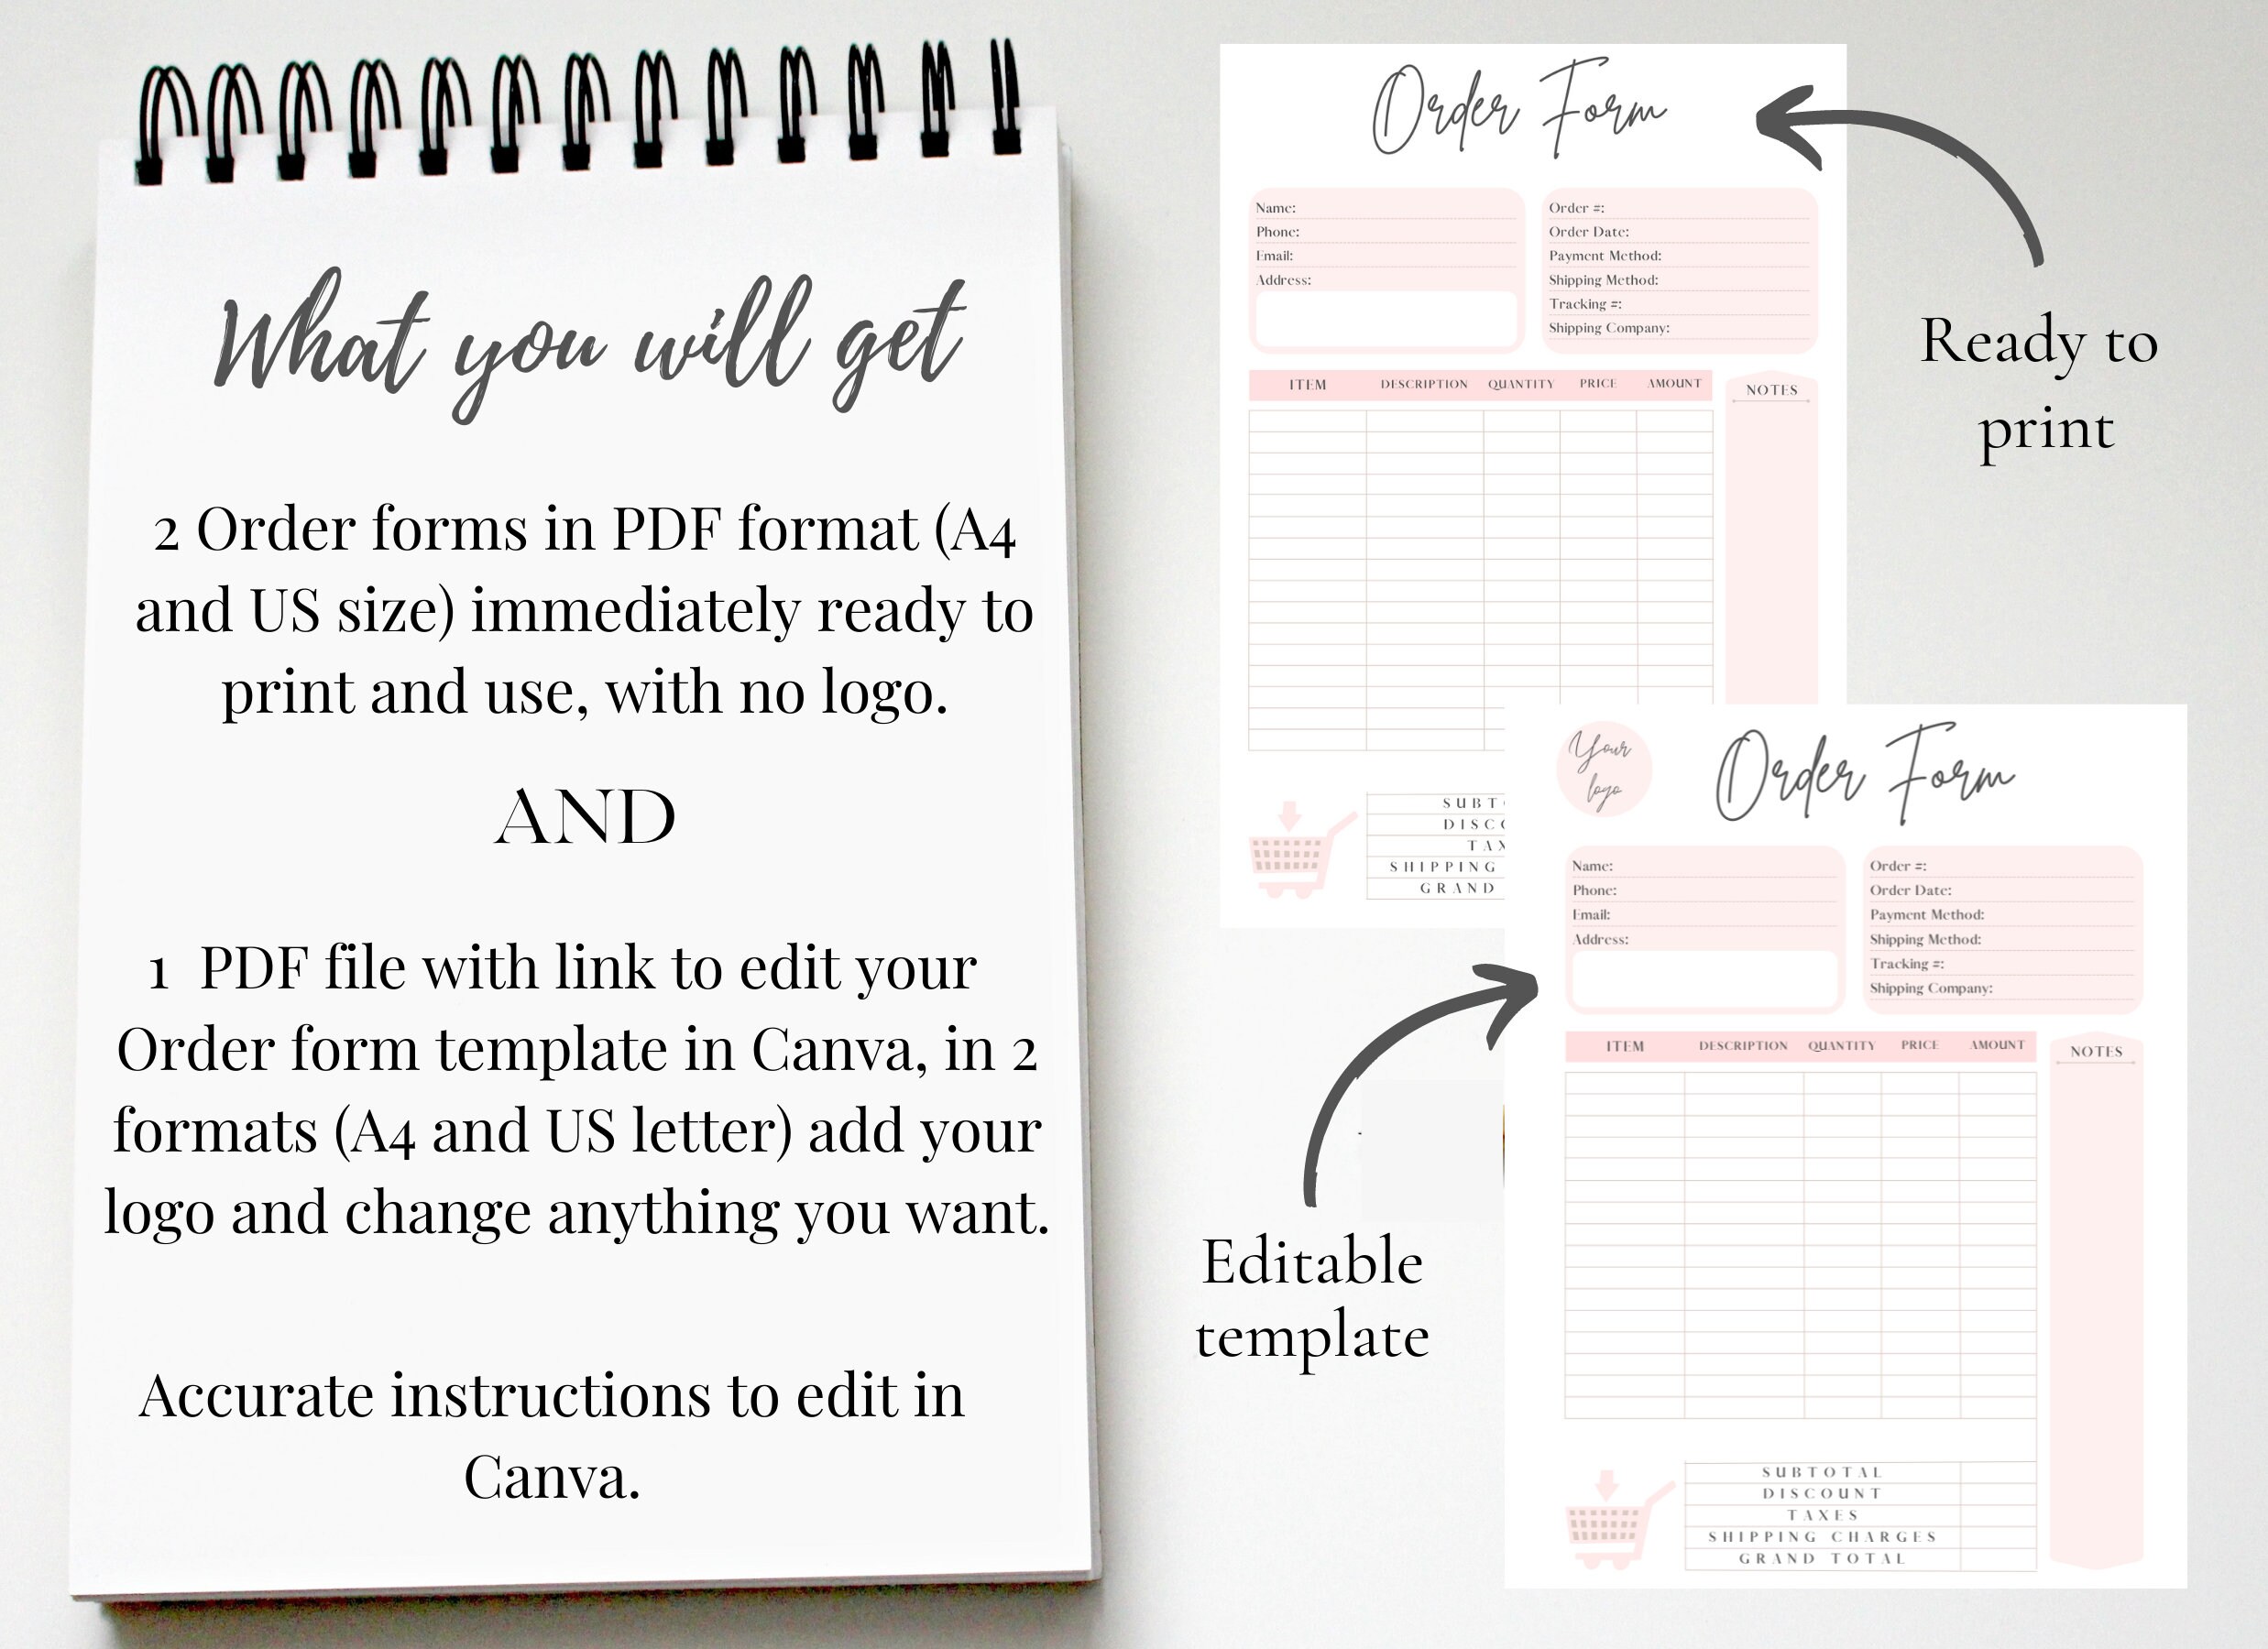 What you will get
2 Order forms in PDF format (A4
and US size) immediately ready to
print and use, with no logo.
AND
1 PDF file with link to edit your
Order form template in Canva, in 2
formats (A4 and US letter) add your
logo and change anything you want.
Accurate instructions to edit in
Canva.
Order Form
Name:
Phone:
Email:
Address:
Order #:
Order Date:
Payment Method:
Shipping Method:
Tracking #:
Shipping Company:
ITEM DESCRIPTION QUANTITY PRICE AMOUNT
NOTES
SUBT
DISCO
TAX
SHIPPING
GRAND
Ready to
print
Your
logo
Order Form
Name:
Phone:
Email:
Address:
Order #:
Order Date:
Payment Method:
Shipping Method:
Tracking #:
Shipping Company:
ITEM DESCRIPTION QUANTITY PRICE AMOUNT
NOTES
SUBTOTAL
DISCOUNT
TAXES
SHIPPING CHARGES
GRAND TOTAL
Editable
template